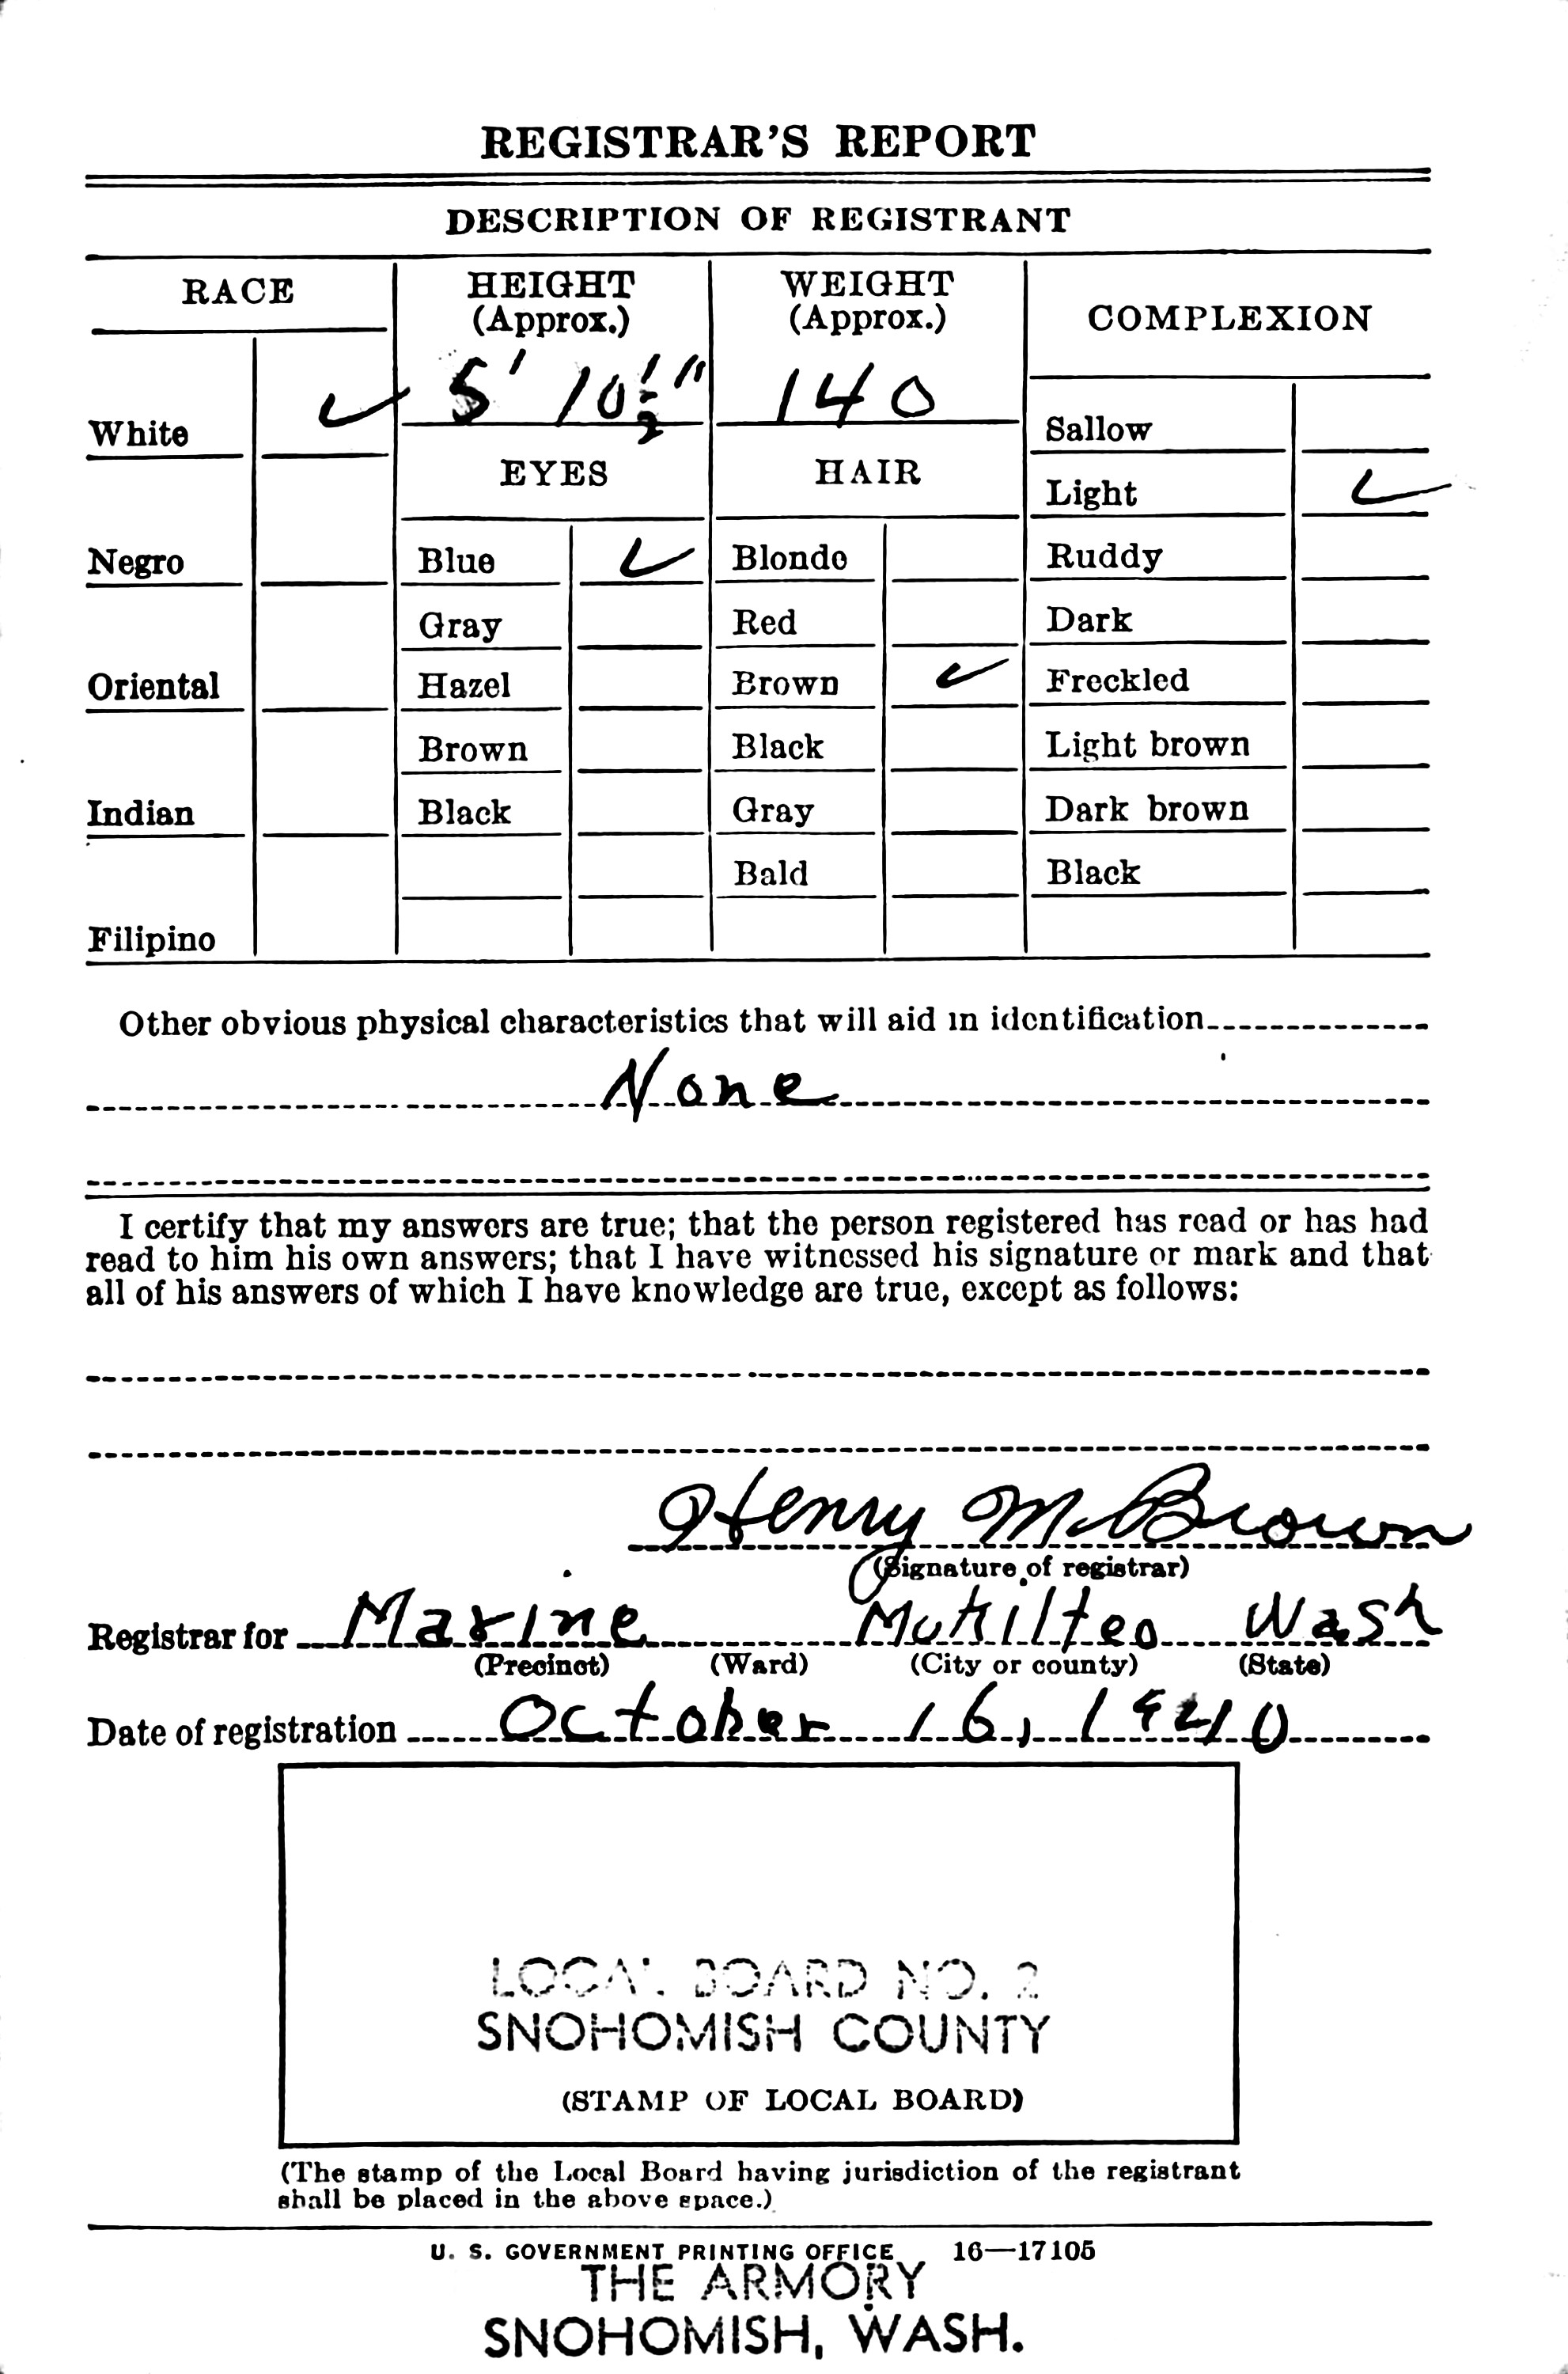 REGISTRAR'S REPORT
DESCRIPTION OF REGISTRANT
RACE
HEIGHT
(Approx.)
WEIGHT
(Approx.)
COMPLEXION
5' 10½"
140
White ✓
Sallow
EYES
HAIR
Light ✓
Negro
Blue ✓
Blonde
Ruddy
Gray
Red
Dark
Oriental
Hazel
Brown ✓
Freckled
Brown
Black
Light brown
Indian
Black
Gray
Dark brown
Bald
Black
Filipino
Other obvious physical characteristics that will aid in identification
None
I certify that my answers are true; that the person registered has read or has had
read to him his own answers; that I have witnessed his signature or mark and that
all of his answers of which I have knowledge are true, except as follows:
Henry M. Brown
(Signature of registrar)
Registrar for Marine Mukilteo Wash
(Precinct) (Ward) (City or county) (State)
Date of registration October 16, 1940
LOCAL BOARD NO. 2
SNOHOMISH COUNTY
(STAMP OF LOCAL BOARD)
(The stamp of the Local Board having jurisdiction of the registrant
shall be placed in the above space.)
U. S. GOVERNMENT PRINTING OFFICE 16—17105
THE ARMORY
SNOHOMISH, WASH.